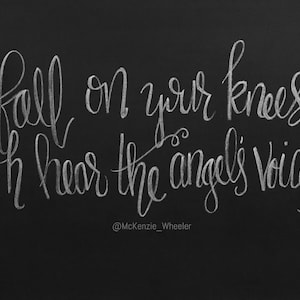 fall on your knees
hear the angel's
@McKenzie_Wheeler